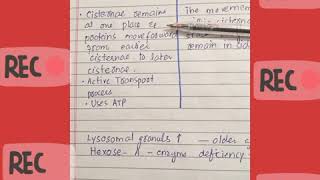 REC
REC
REC
REC
• Cisternae remains
at one place &
proteins move forward
from earlier
cisternae to later
cisternae.
• Active Transport
process
• Uses ATP
The movement
cisternae
remain in
Lysosomal granules ↑ — older
Hexose - A - enzyme deficiency